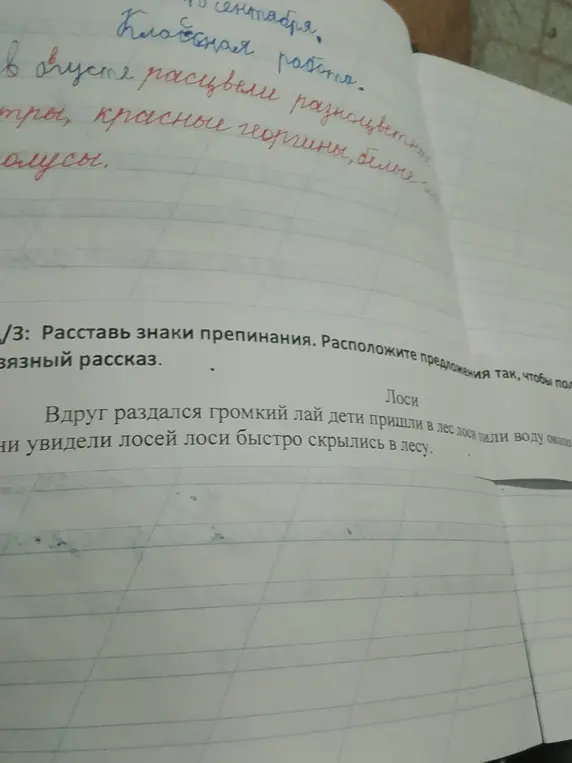 сентября.
Классная работа.
в августе расцвели разноцветные
тры, красные георгины, белые
олусы.
/З: Расставь знаки препинания. Расположите предложения так, чтобы пол
вязный рассказ.
Лоси
Вдруг раздался громкий лай дети пришли в лес лоси пили воду около
ни увидели лосей лоси быстро скрылись в лесу.